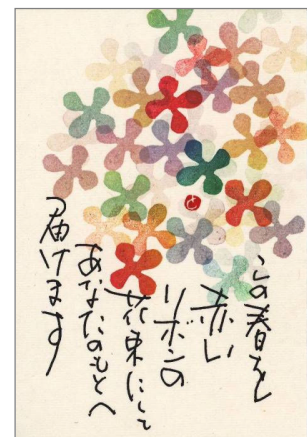 この春をし
赤い
リボンの
花束にして
あなたのもとへ
届けます